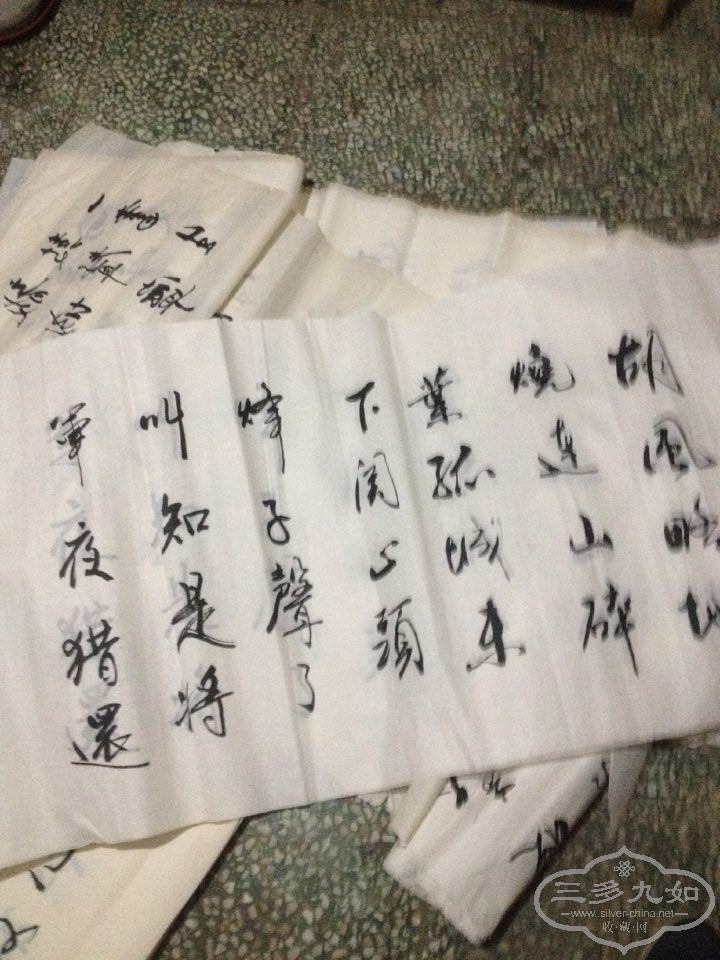 胡風略地
燒連山碎
葉孤城未
下関山頭
烽子聲々
叫知是將
軍夜猎還
三多九如
www.silver-china.net
收·藏·网